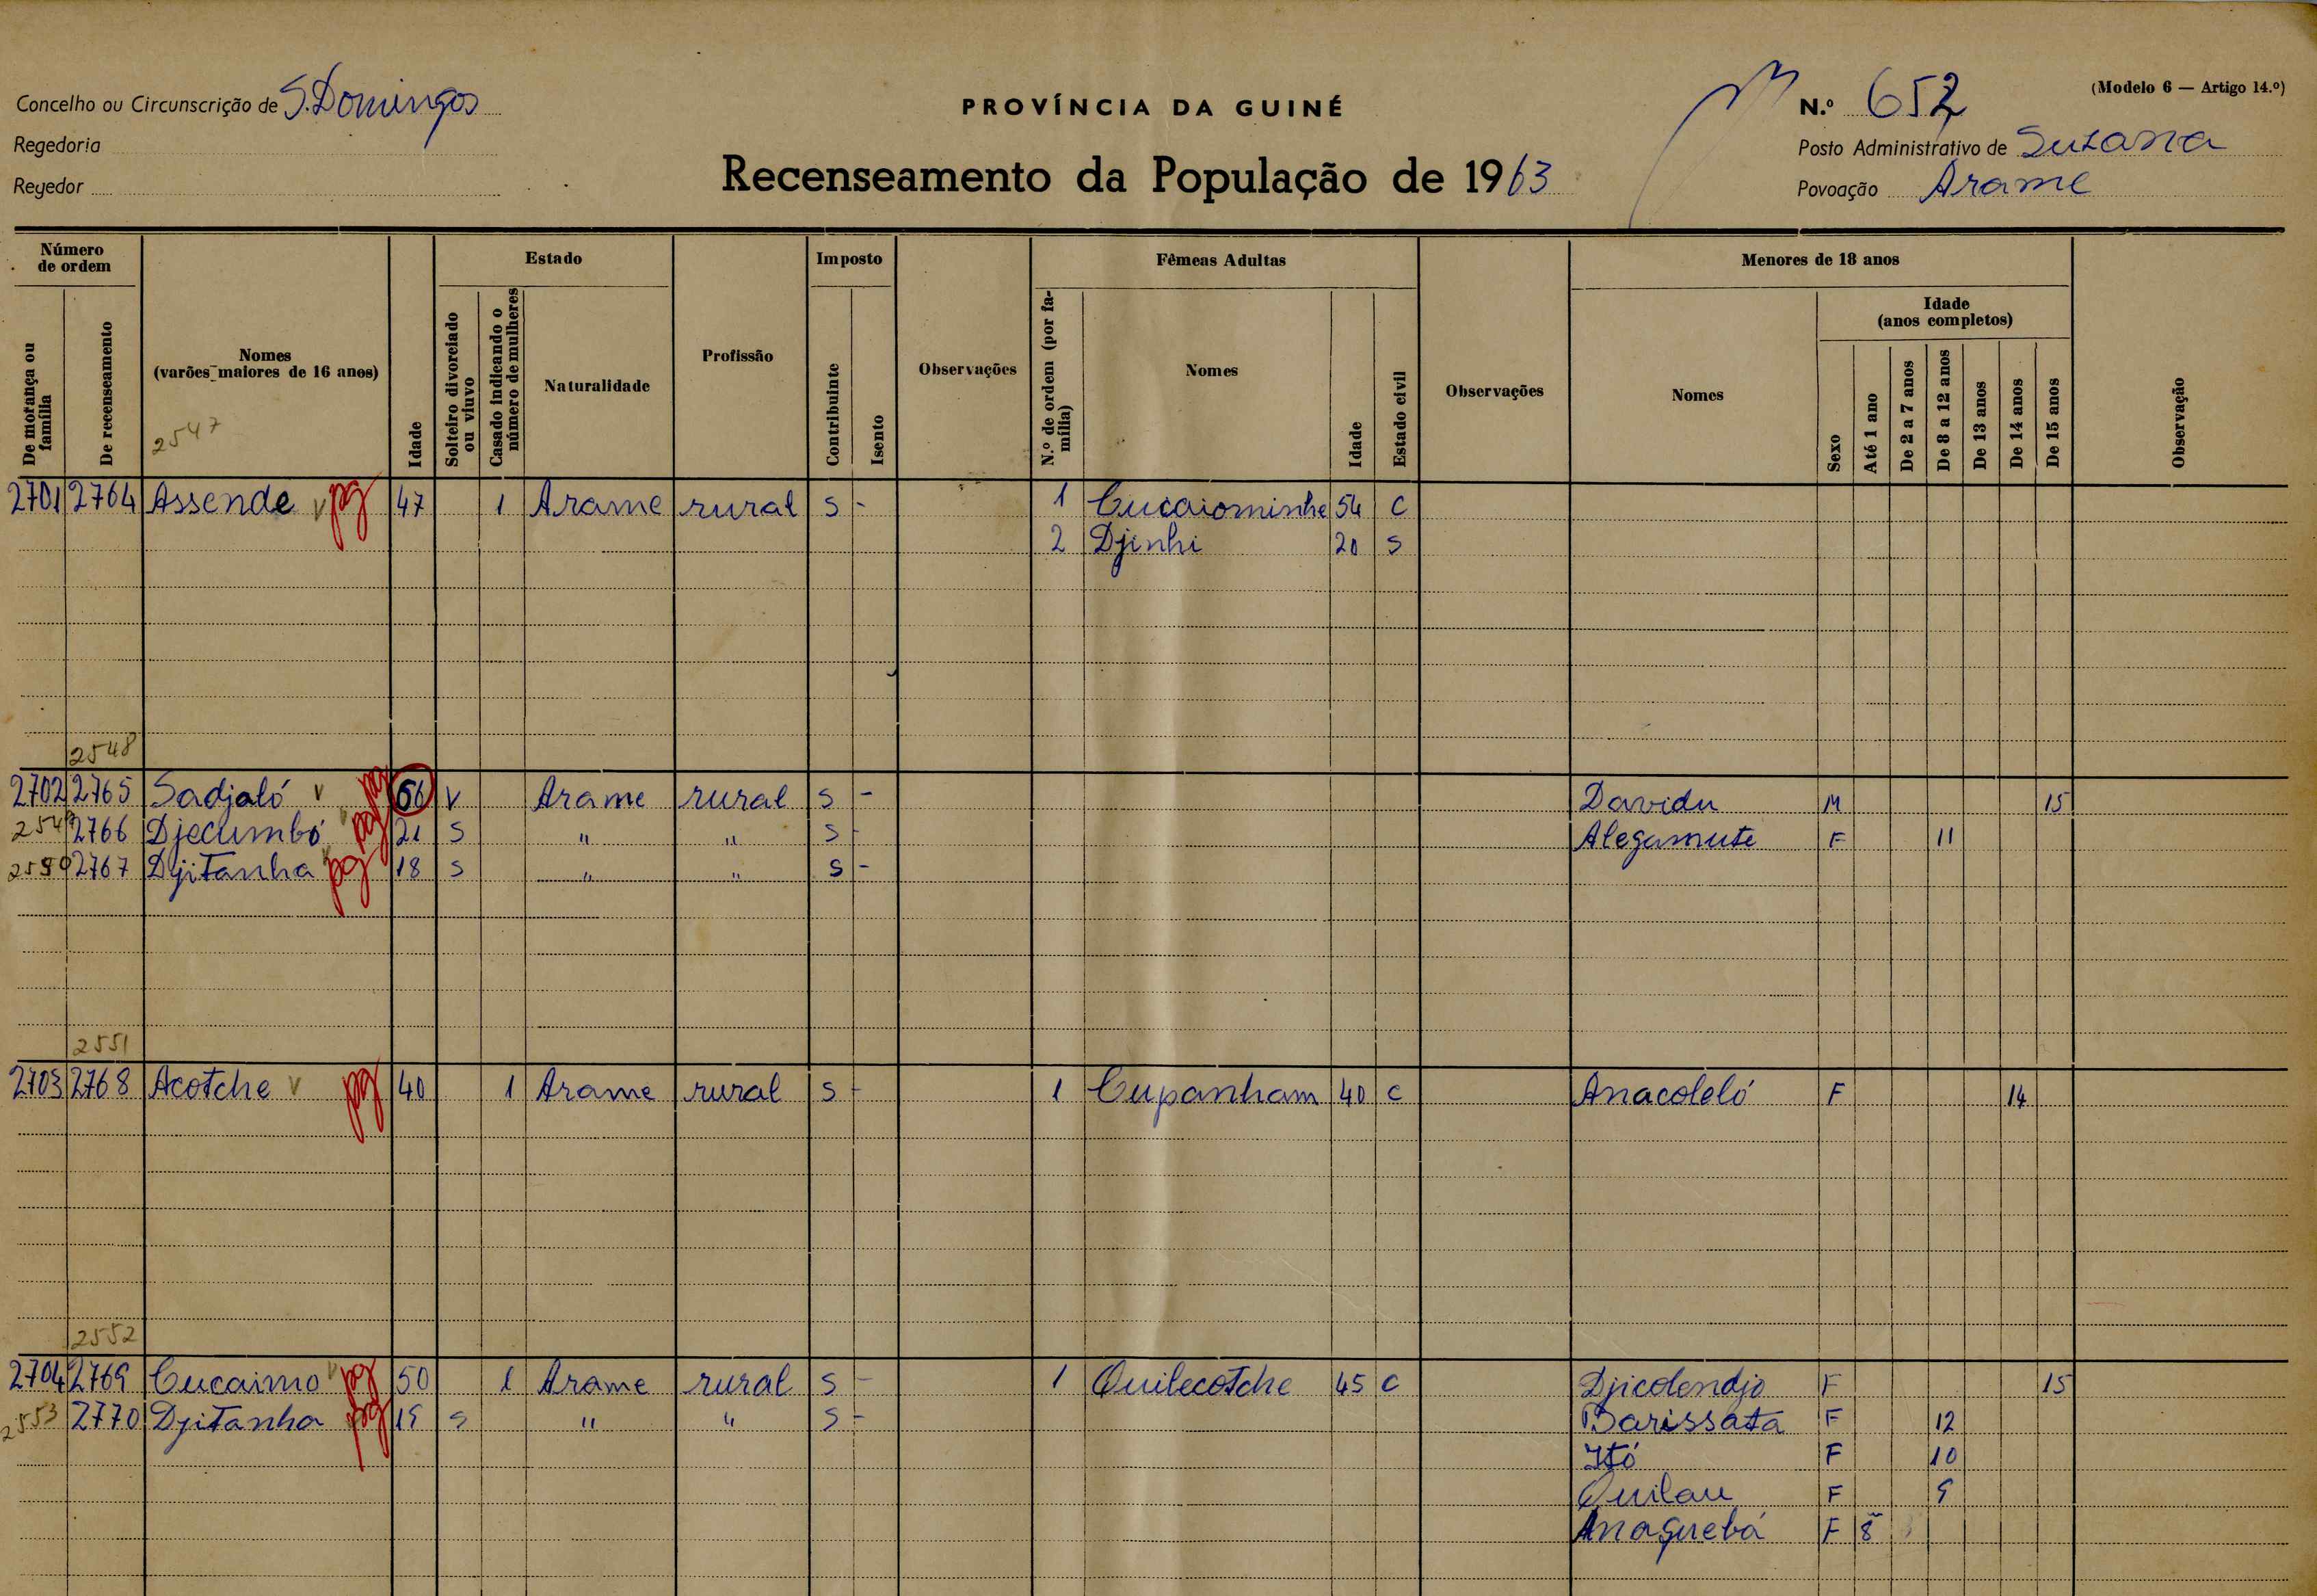 Concelho ou Circunscrição de S. Domingos
PROVÍNCIA DA GUINÉ
N.º 652
(Modelo 6 — Artigo 14.º)
Regedoria
Posto Administrativo de Suzana
Regedor
Recenseamento da População de 1963
Povoação Arame
Número de ordem
Estado
Imposto
Fêmeas Adultas
Menores de 18 anos
Idade (anos completos)
De morança ou família
De recenseamento
Nomes (varões maiores de 16 anos)
Idade
Solteiro divorciado ou viuvo
Casado indicando o número de mulheres
Naturalidade
Profissão
Contribuinte
Isento
Observações
N.º de ordem (por família)
Nomes
Idade
Estado civil
Observações
Nomes
Sexo
Até 1 ano
De 2 a 7 anos
De 8 a 12 anos
De 13 anos
De 14 anos
De 15 anos
Observação
2547
2701 2764 Assende v pg 47 1 Arame rural S - 1 Cucaiominhe 54 C
2 Djinhi 20 S
2548
2702 2765 Sadjaló v pg 56 V Arame rural S - Davidu M 15
2549 2766 Djecumbó v pg 21 S " " S - Alegamute F 11
2550 2767 Djitanha v pg 18 S " " S -
2551
2703 2768 Acotche v pg 40 1 Arame rural S - 1 Cupanham 40 C Anacoleló F 14
2552
2704 2769 Cucaimo v pg 50 1 Arame rural S - 1 Quilecotche 45 C Djicolendjo F 15
2553 2770 Djitanha pg 19 S " " S - Barissata F 12
Itó F 10
Quilau F 9
Anaquebá F 8